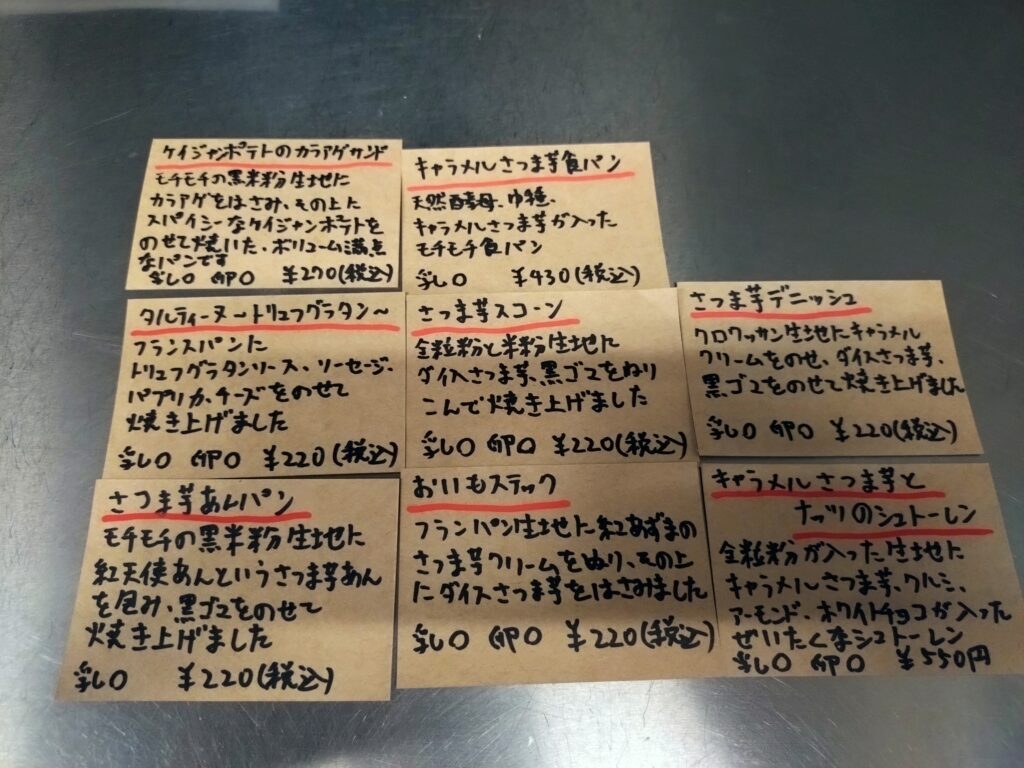 ケイジャンポテトのカラアゲサンド
モチモチの黒米粉生地に
カラアゲをはさみ、その上に
スパイシーなケイジャンポテトを
のせて焼いた、ボリューム満点
なパンです
乳○ 卵○ ¥270(税込)
キャラメルさつま芋食パン
天然酵母、中種、
キャラメルさつま芋が入った
モチモチ食パン
乳○ ¥430(税込)
タルティーヌ～トリュフグラタン～
フランスパンに
トリュフグラタンソース、ソーセージ、
パプリカ、チーズをのせて
焼き上げました
乳○ 卵○ ¥220(税込)
さつま芋スコーン
全粒粉と米粉生地に
ダイスさつま芋、黒ゴマをねり
こんで焼き上げました
乳○ 卵○ ¥220(税込)
さつま芋デニッシュ
クロワッサン生地にキャラメル
クリームをのせ、ダイスさつま芋、
黒ゴマをのせて焼き上げました
乳○ 卵○ ¥220(税込)
さつま芋あんパン
モチモチの黒米粉生地に
紅天使あんというさつま芋あん
を包み、黒ゴマをのせて
焼き上げました
乳○ ¥220(税込)
おいもスティック
フランパン生地に紅あずまの
さつま芋クリームをぬり、その上
にダイスさつま芋をはさみました
乳○ 卵○ ¥220(税込)
キャラメルさつま芋と
ナッツのシュトーレン
全粒粉が入った生地に
キャラメルさつま芋、クルミ、
アーモンド、ホワイトチョコが入った
ぜいたくなシュトーレン
乳○ 卵○ ¥550円